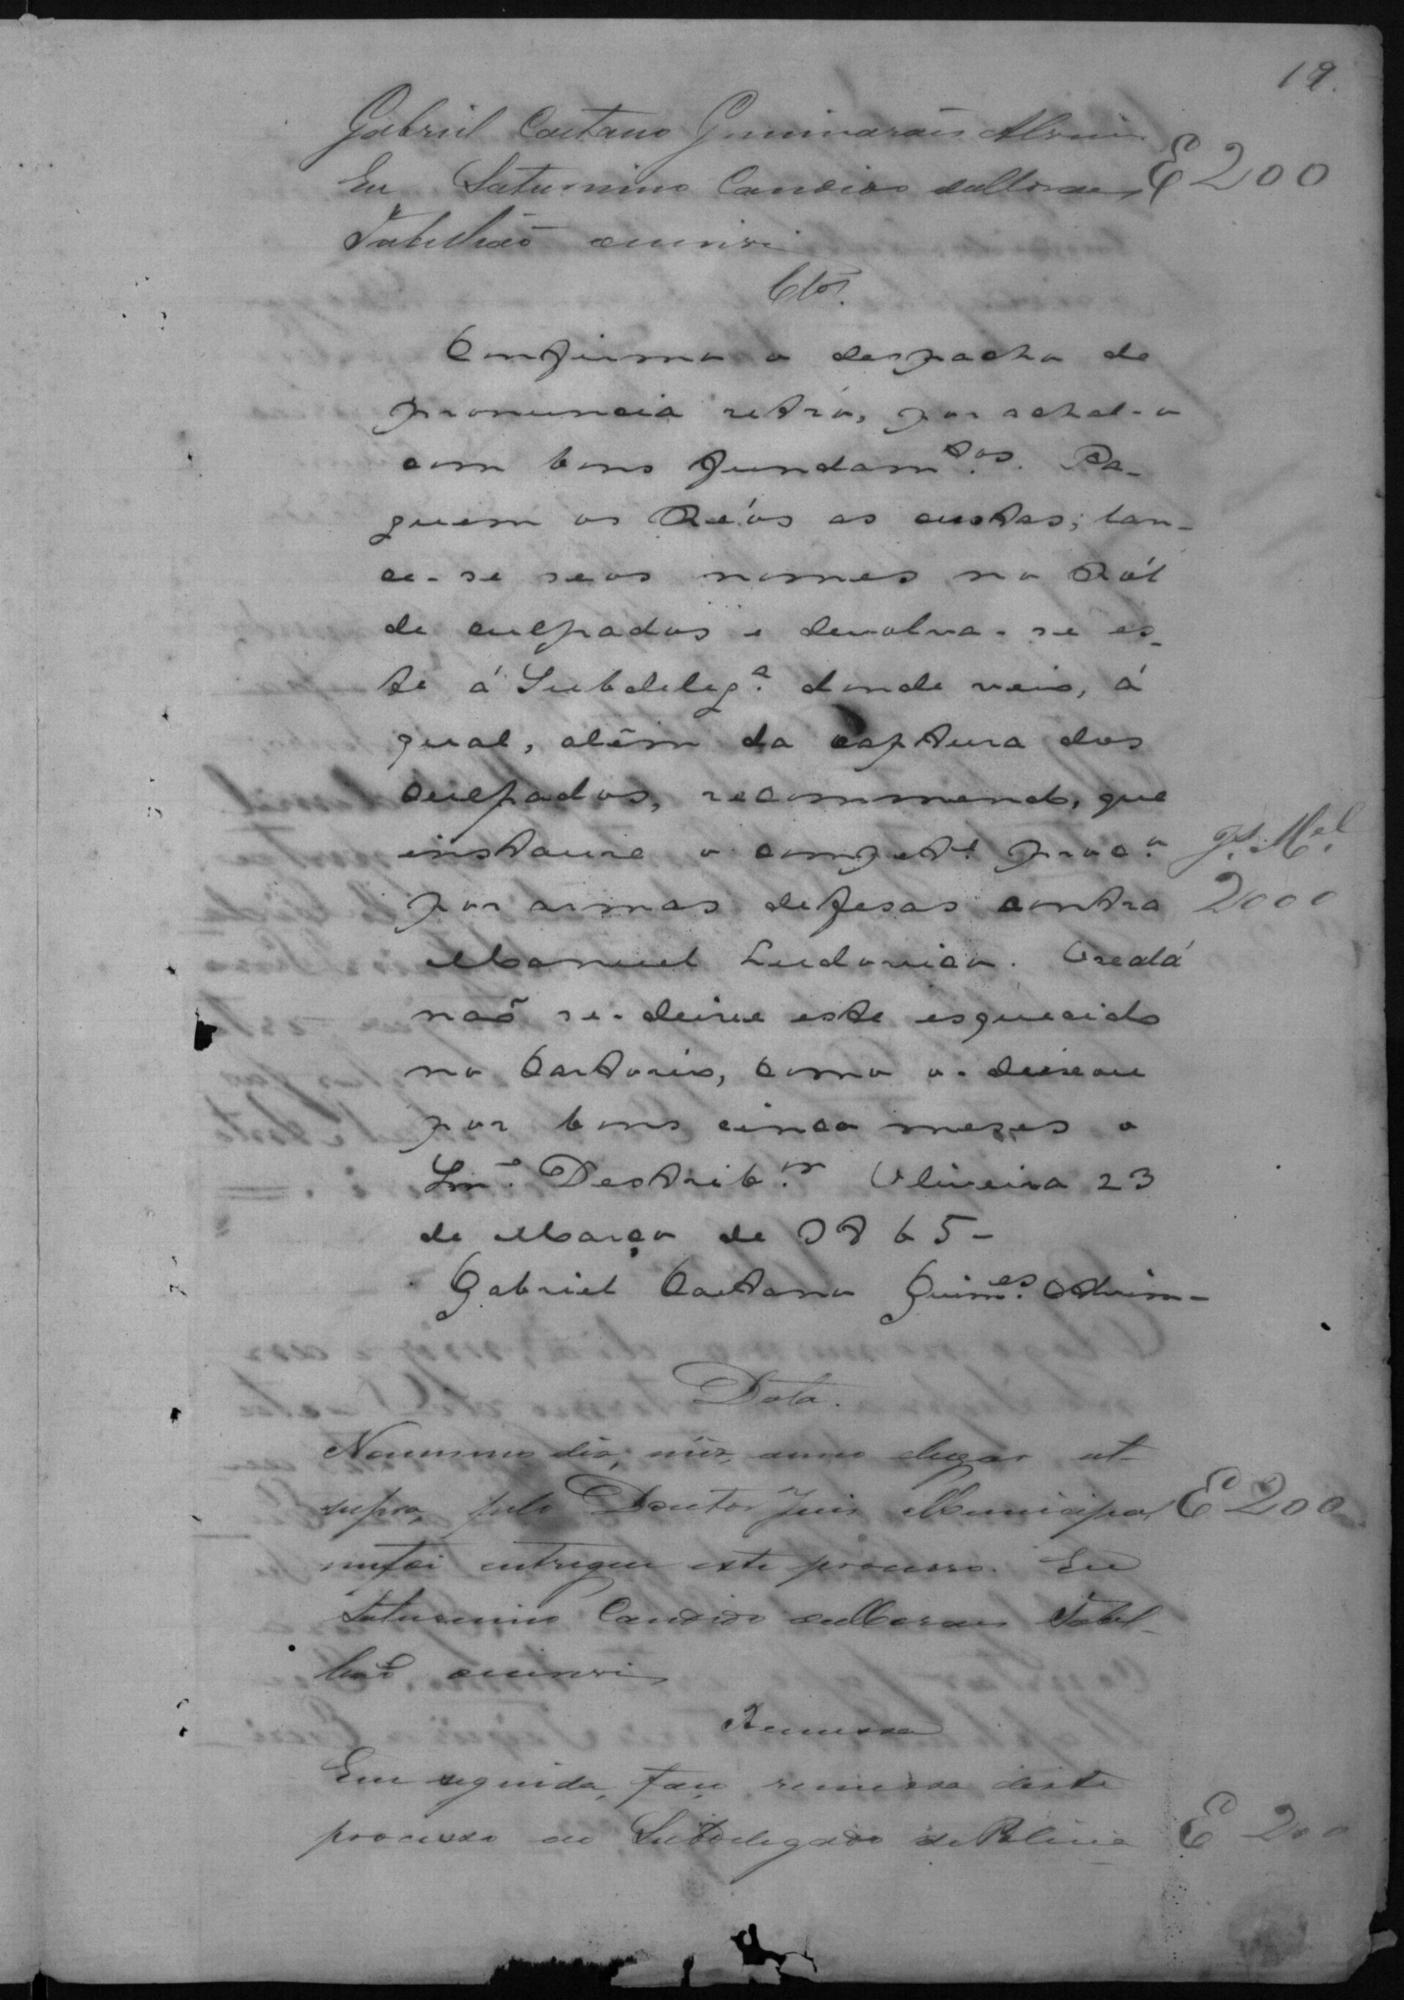 19.
Gabriel Caetano Guimarães Alvim
E 200
Eu Saturnino Candido de Moraes
Tabelliaõ escrivi
Clos.
Confirmo o despacho de
pronuncia retro, por achal-o
com bons fundam.tos. Pa-
guem os Réos as custas; lan-
ce-se seos nomes no Ról
de culpados e devolva-se es-
te á Subdeleg.a donde veio, á
qual, além da captura dos
culpados, recommendo, que
instaure o compet.e proc.o
g.s M.el
2000
por armas defesas contra
Manuel Ludovico. Oxalá
naõ se-deixe este esquecido
no Cartorio, como o-deixou
por bons cinco meses o
Destrib.or Oliveira 23
de Março de 1865-
Gabriel Caetano Guim.es Alvim-
Data.
No mesmo dia, mez, anno elugar ut
supra, pelo Doutor Juis Municipal
E 200
mefoi entregue este processo. Eu
Saturnino Candido de Moraes Tabel-
liaõ escrivi
Remessa
Em seguida, faço remessa deste
processo ao Subdelegado de Policia
E 200